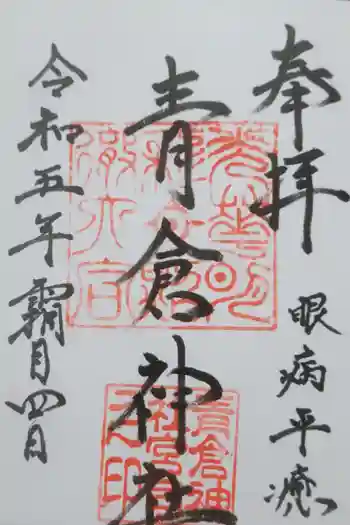 奉拝
眼病平癒
青倉神社
令和五年霜月四日
青倉神
社宮司
之印